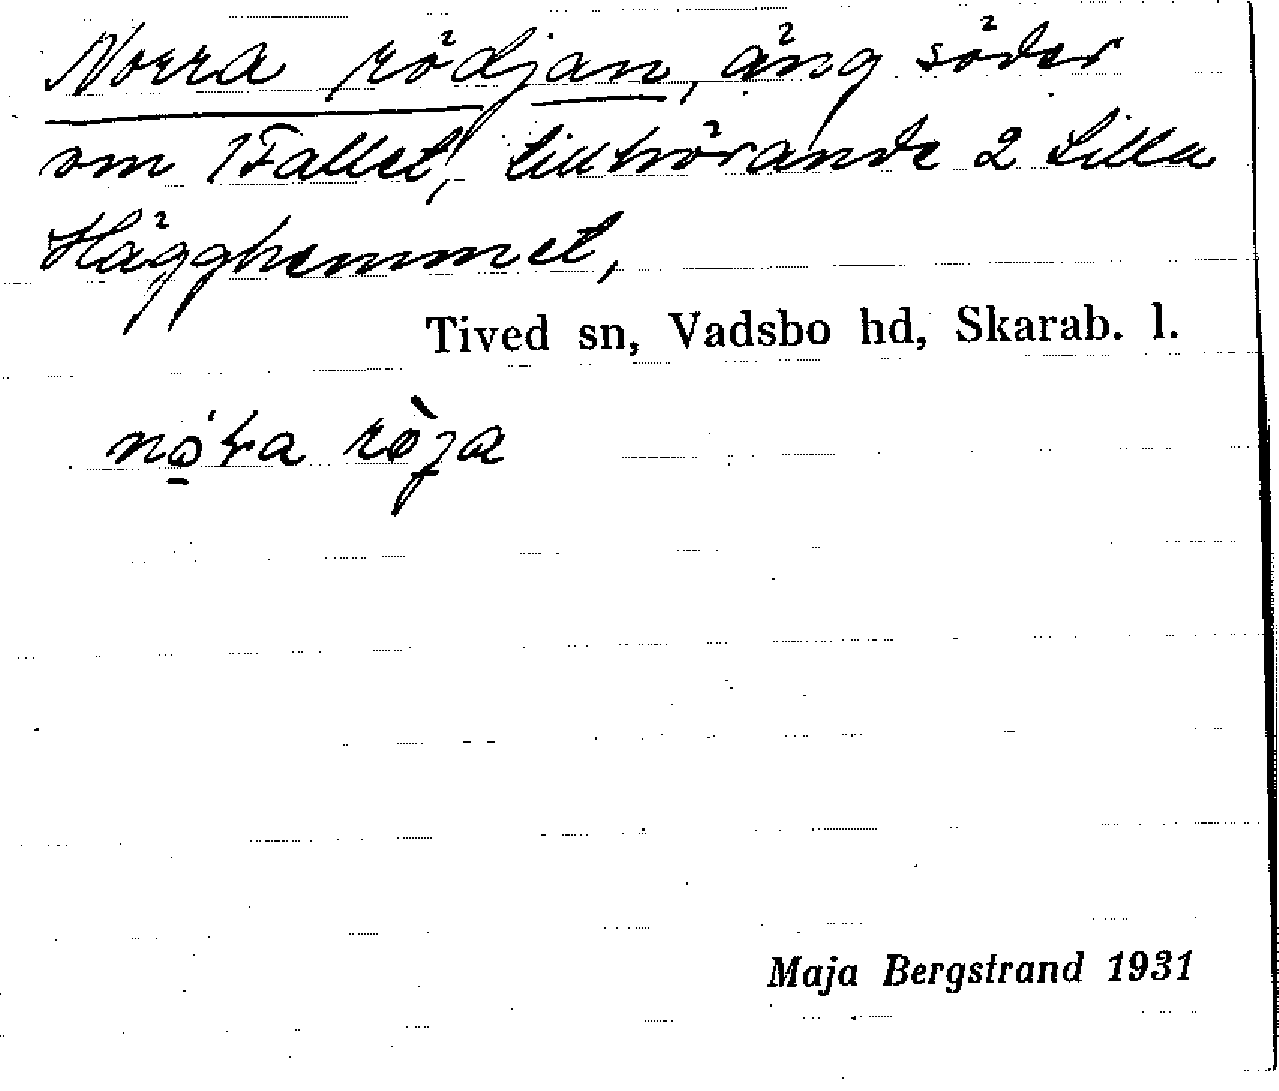 Norra rödjan, äng söder
om 1Fallet, tillhörande 2 Lilla
Hägghemmet,
Tived sn, Vadsbo hd, Skarab. l.
Maja Bergstrand 1931